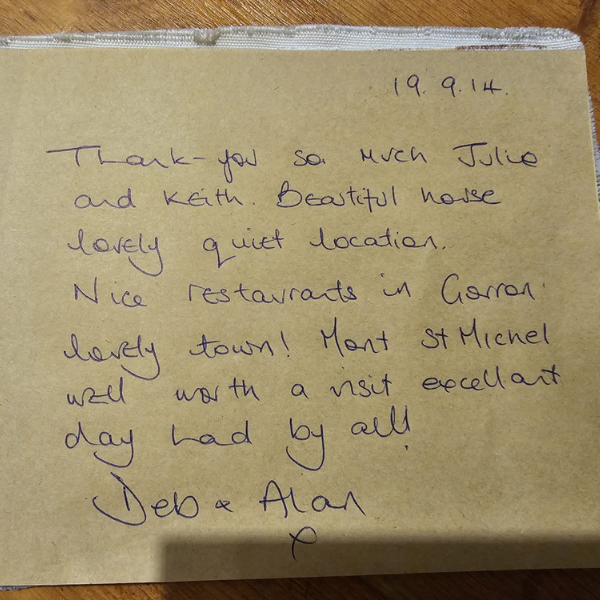 19.9.14.
Thank-you so much Julie
and Keith. Beautiful house
lovely quiet location.
Nice restaurants in Gorron
lovely town! Mont St Michel
well worth a visit excellant
day had by all!
Deb & Alan
x